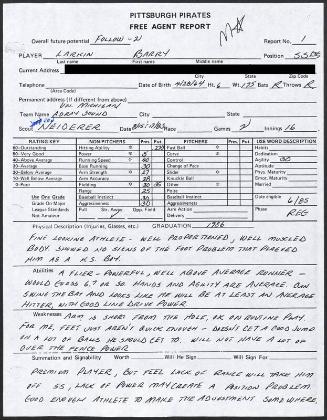 PITTSBURGH PIRATES
FREE AGENT REPORT
Overall future potential FOLLOW - 21 Report No. 1
PLAYER LARKIN BARRY Position SS
Last name First name Middle name
Current Address
City State Zip Code
Telephone Date of Birth 4/28/64 Ht. 6 Wt. 175 Bats R Throws R
(Area Code)
Permanent address (if different from above)
Team Name City State
Scout NEIDERER Date Games 2 Innings 16
RATING KEY NON-PITCHERS Pres. Fut. PITCHERS Pres. Fut. USE WORD DESCRIPTION
80-Outstanding Hitting Ability Fast Ball Habits
70-Very Good Power Curve Dedication
60-Above Average Running Speed Control Agility
50-Average Base Running Change of Pace Aptitude
40-Below Average Arm Strength Slider Phys. Maturity
30-Well Below Average Arm Accuracy Knuckle Ball Emot. Maturity
20-Poor Fielding Other Married
Range Poise
Use One Grade Baseball Instinct Baseball Instinct Date eligible 6/85
Grade On Major Aggressiveness Aggressiveness Phase
League Standards Pull Str. Away Opp. Field Arm Action REG
Not Amateur Delivery
Physical Description (Injuries, Glasses, etc.) GRADUATION 1986
FINE LOOKING ATHLETE - WELL PROPORTIONED, WELL MUSCLED
BODY. SHOWED NO SIGNS OF THE FOOT PROBLEM THAT PLAGUED
HIM AS A H.S. BOY.
Abilities A FLIER - POWERFUL, WELL ABOVE AVERAGE RUNNER -
WOULD GUESS 6.7 OR SO. HANDS AND AGILITY ARE AVERAGE. CAN
SWING THE BAT AND LOOKS LIKE HE WILL BE AT LEAST AN AVERAGE
HITTER, WITH GOOD LINE DRIVE POWER
Weaknesses ARM IS SHORT FROM THE HOLE, OK ON ROUTINE PLAY.
FOR ME, FEET JUST AREN'T QUICK ENOUGH - DOESN'T GET A GOOD JUMP
ON A LOT OF BALLS HE SHOULD GET TO. WILL NOT HAVE A LOT OF
OVER THE FENCE POWER
Summation and Signability Worth Will He Sign Will Sign For
PREMIUM PLAYER, BUT FEEL LACK OF RANGE WILL TAKE HIM
OFF SS, LACK OF POWER MAY CREATE A POSITION PROBLEM
GOOD ENOUGH ATHLETE TO MAKE THE ADJUSTMENT SOMEWHERE.